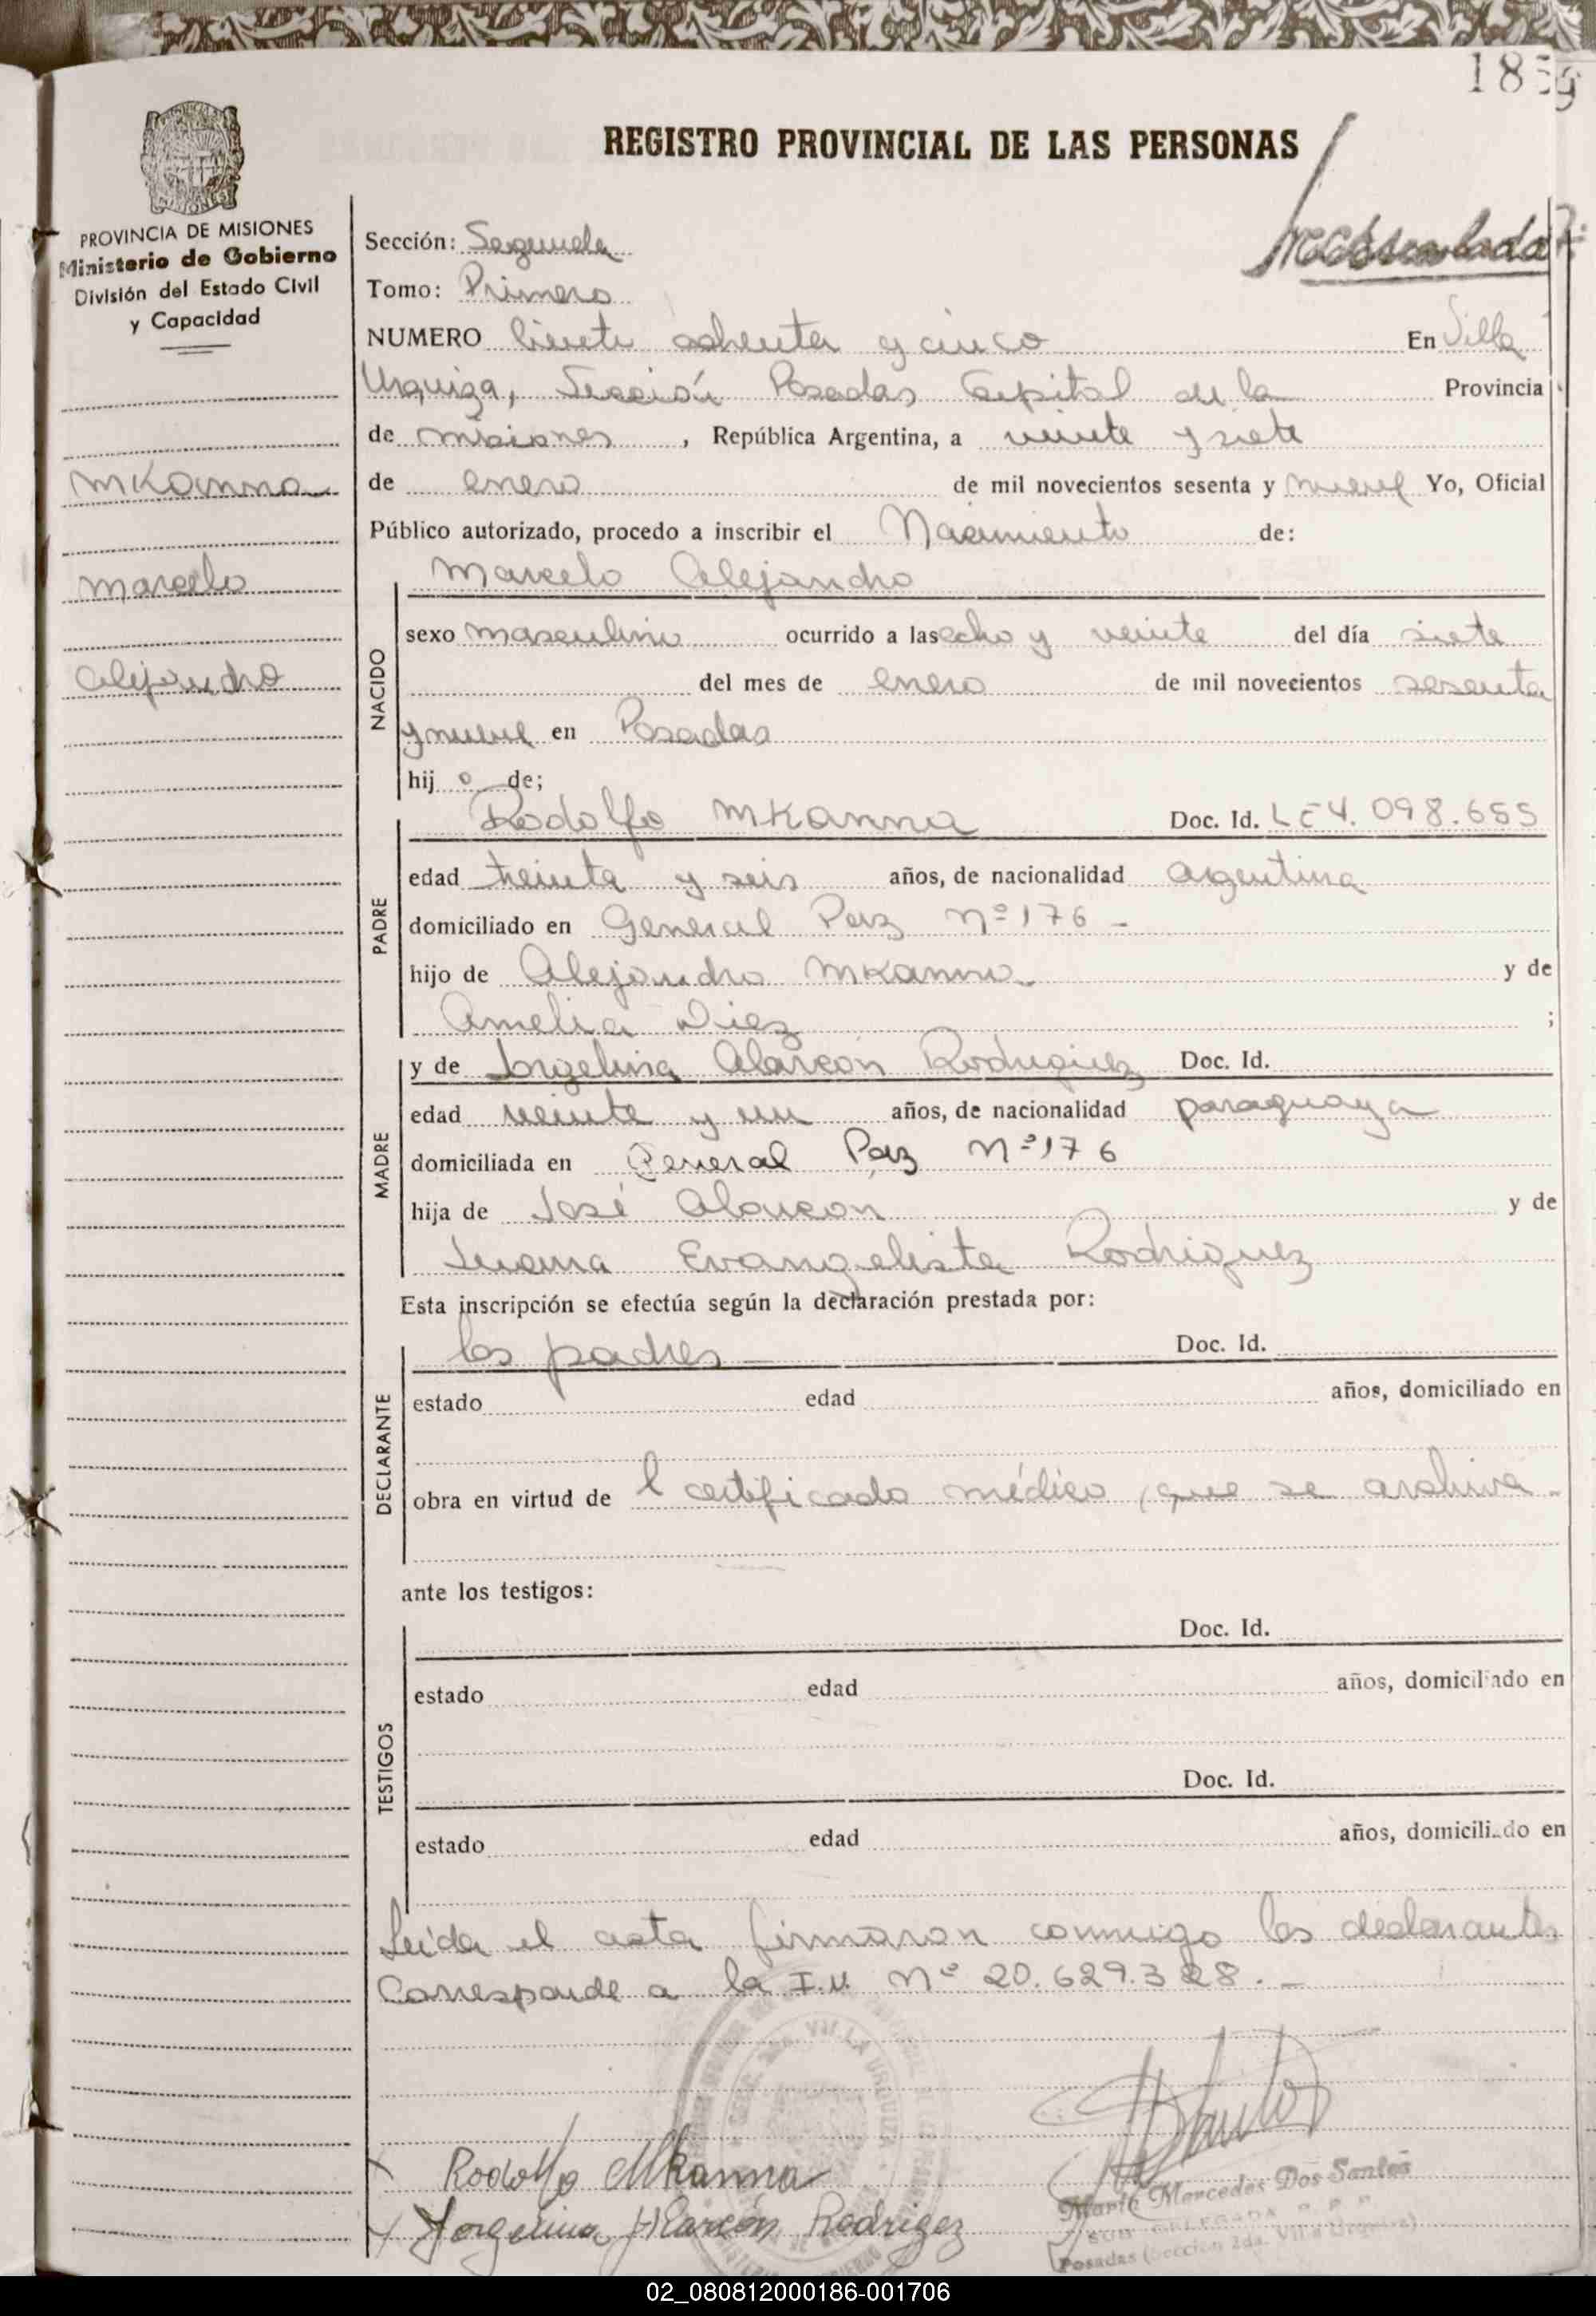 REGISTRO PROVINCIAL DE LAS PERSONAS
PROVINCIA DE MISIONES
Ministerio de Gobierno
División del Estado Civil
y Capacidad
Mkanna
Marcelo
Alejandro
Sección: Segunda
Tomo: Primero
NUMERO Ciento ochenta y cinco En Villa
Urquiza, Sección Posadas Capital de la Provincia
de Misiones, República Argentina, a veinte y siete
de enero de mil novecientos sesenta y nueve Yo, Oficial
Público autorizado, procedo a inscribir el Nacimiento de:
Marcelo Alejandro
NACIDO
sexo masculino ocurrido a las ocho y veinte del día siete
del mes de enero de mil novecientos sesenta
y nueve en Posadas
hijo de;
PADRE
Rodolfo Mkanna Doc. Id. LE 4.098.655
edad treinta y seis años, de nacionalidad argentina
domiciliado en General Paz Nº 176 -
hijo de Alejandro Mkanna y de
Amelia Diez ;
MADRE
y de Jorgelina Alarcón Rodriguez Doc. Id.
edad veinte y un años, de nacionalidad paraguaya
domiciliada en General Paz Nº 176
hija de José Alarcon y de
Juana Evangelista Rodriguez
Esta inscripción se efectúa según la declaración prestada por:
DECLARANTE
los padres Doc. Id.
estado edad años, domiciliado en
obra en virtud de l certificado médico, que se archiva -
ante los testigos:
TESTIGOS
Doc. Id.
estado edad años, domiciliado en
Doc. Id.
estado edad años, domiciliado en
Leida el acta firmaron conmigo los declarantes
Corresponde a la I.N. Nº 20.629.328. -
VILLA URQUIZA
Rodolfo Mkanna
Jorgelina Alarcón Rodrigez
Mercedes Dos Santos
SUB DELEGADA
Posadas (Sección 2da. Villa Urquiza)
02_080812000186-001706